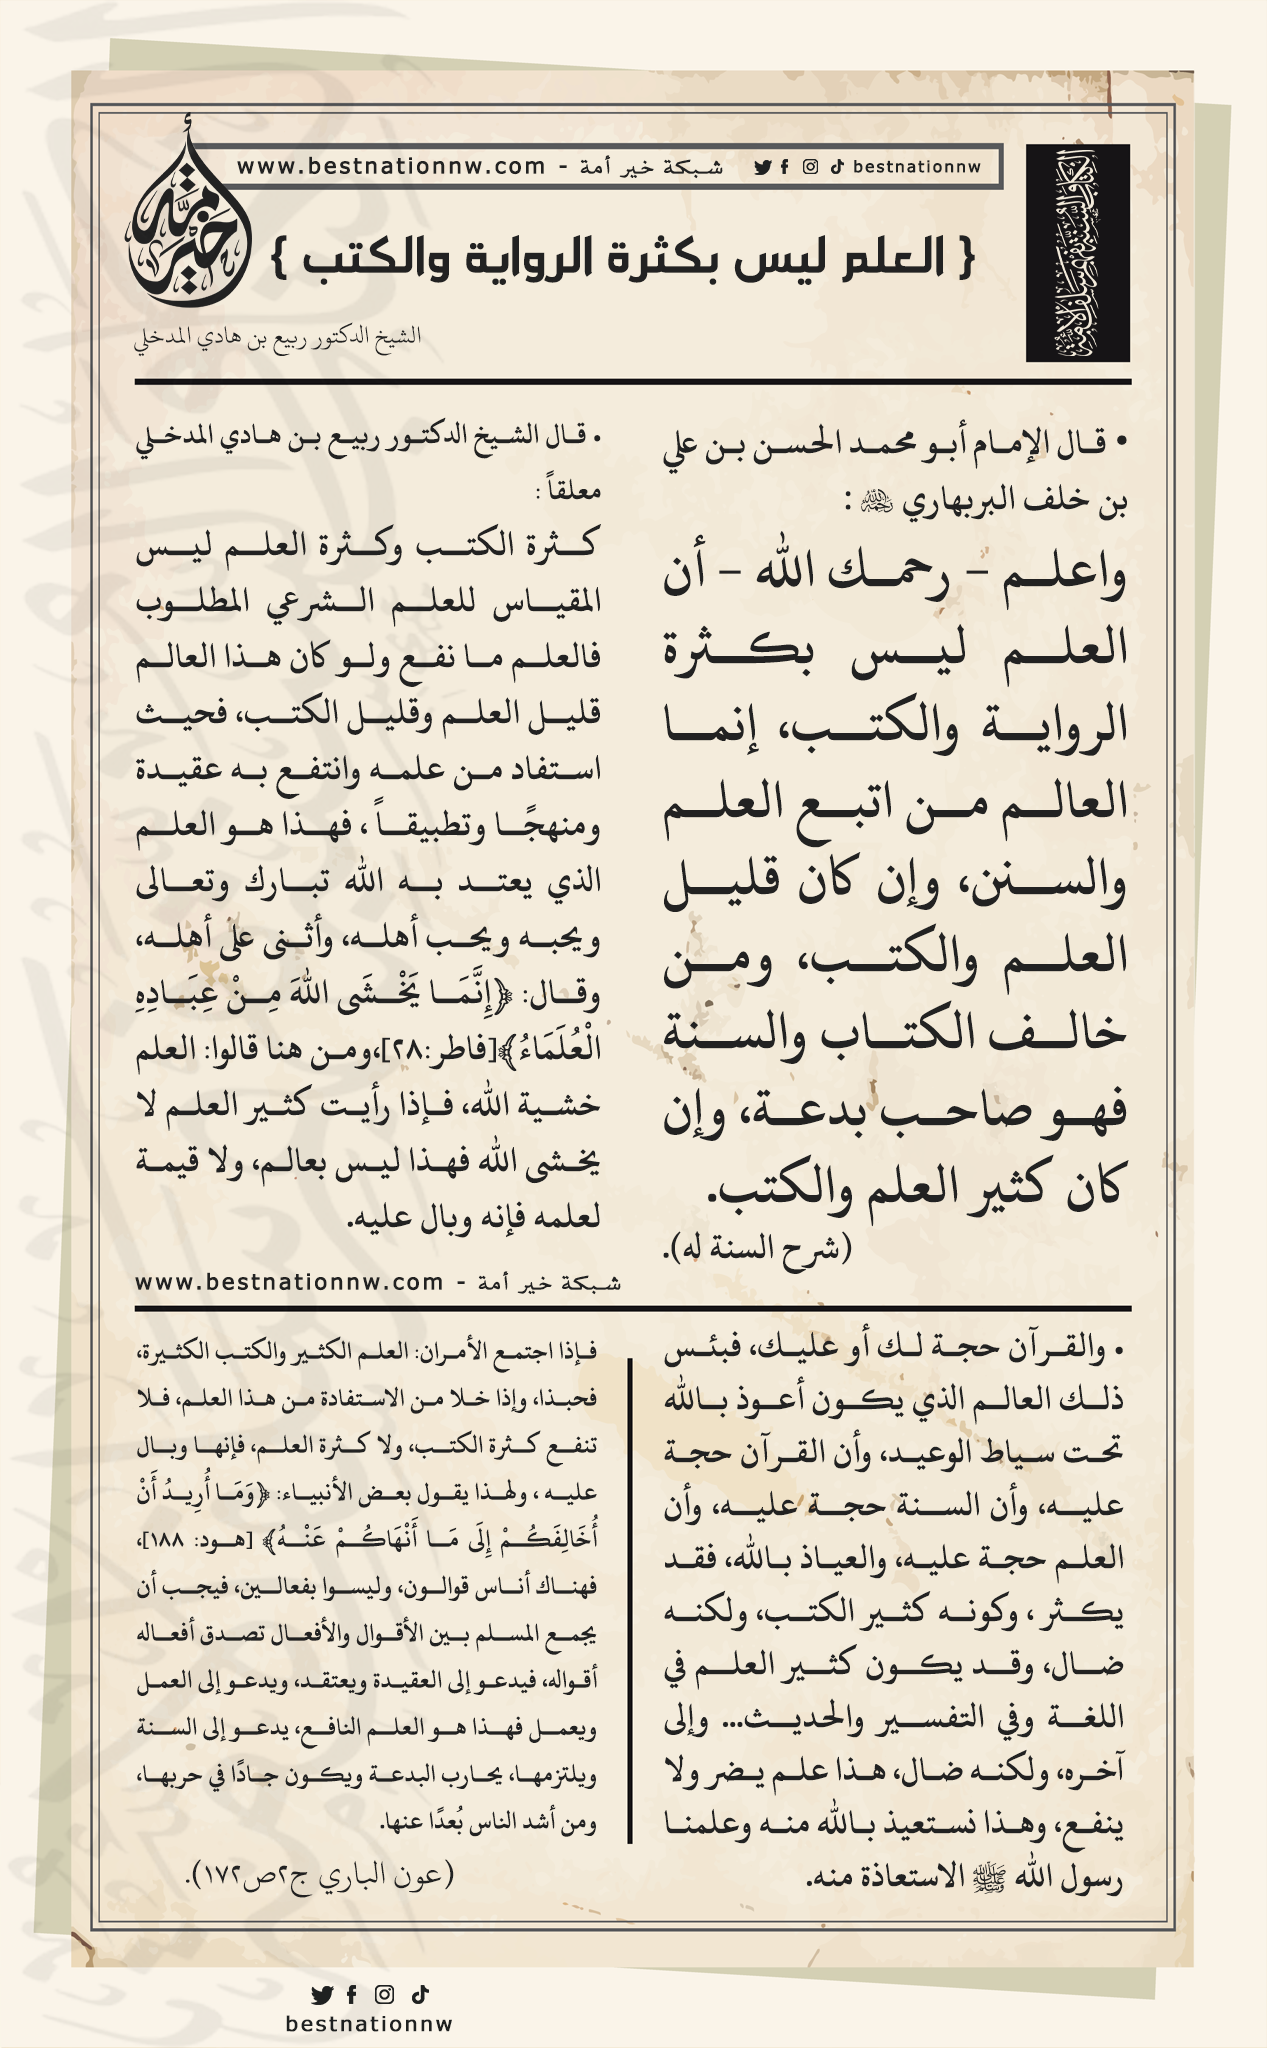 www.bestnationnw.com - شبكة خير أمة bestnationnw
خير أمة
الكتاب والسنة بفهم سلف الأمة
{ العلم ليس بكثرة الرواية والكتب }
الشيخ الدكتور ربيع بن هادي المدخلي
• قال الإمام أبو محمد الحسن بن علي
بن خلف البربهاري رحمه الله :
واعلم – رحمك الله – أن
العلم ليس بكثرة
الرواية والكتب، إنما
العالم من اتبع العلم
والسنن، وإن كان قليل
العلم والكتب، ومن
خالف الكتاب والسنة
فهو صاحب بدعة، وإن
كان كثير العلم والكتب.
(شرح السنة له).
• قال الشيخ الدكتور ربيع بن هادي المدخلي
معلقاً :
كثرة الكتب وكثرة العلم ليس
المقياس للعلم الشرعي المطلوب
فالعلم ما نفع ولو كان هذا العالم
قليل العلم وقليل الكتب، فحيث
استفاد من علمه وانتفع به عقيدة
ومنهجًا وتطبيقاً ، فهذا هو العلم
الذي يعتد به الله تبارك وتعالى
ويحبه ويحب أهله، وأثنى على أهله،
وقال: ﴿إِنَّمَا يَخْشَى اللهَ مِنْ عِبَادِهِ
الْعُلَمَاءُ﴾[فاطر:٢٨]،ومن هنا قالوا: العلم
خشية الله، فإذا رأيت كثير العلم لا
يخشى الله فهذا ليس بعالم، ولا قيمة
لعلمه فإنه وبال عليه.
www.bestnationnw.com - شبكة خير أمة
• والقرآن حجة لك أو عليك، فبئس
ذلك العالم الذي يكون أعوذ بالله
تحت سياط الوعيد، وأن القرآن حجة
عليه، وأن السنة حجة عليه، وأن
العلم حجة عليه، والعياذ بالله، فقد
يكثر ، وكونه كثير الكتب، ولكنه
ضال، وقد يكون كثير العلم في
اللغة وفي التفسير والحديث... وإلى
آخره، ولكنه ضال، هذا علم يضر ولا
ينفع، وهذا نستعيذ بالله منه وعلمنا
رسول الله ﷺ الاستعاذة منه.
فإذا اجتمع الأمران: العلم الكثير والكتب الكثيرة،
فحبذا، وإذا خلا من الاستفادة من هذا العلم، فلا
تنفع كثرة الكتب، ولا كثرة العلم، فإنها وبال
عليه ، ولهذا يقول بعض الأنبياء: ﴿وَمَا أُرِيدُ أَنْ
أُخَالِفَكُمْ إِلَى مَا أَنْهَاكُمْ عَنْهُ﴾ [هود: ١٨٨]،
فهناك أناس قوالون، وليسوا بفعالين، فيجب أن
يجمع المسلم بين الأقوال والأفعال تصدق أفعاله
أقواله، فيدعو إلى العقيدة ويعتقد، ويدعو إلى العمل
ويعمل فهذا هو العلم النافع، يدعو إلى السنة
ويلتزمها، يحارب البدعة ويكون جادًا في حربها،
ومن أشد الناس بُعدًا عنها.
(عون الباري ج٢ص١٧٢).
bestnationnw